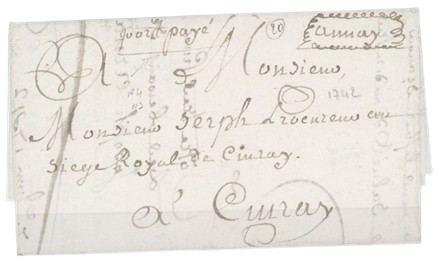 port payé
20
Civray
A Monsieur,
1742
Monsieur Serph Procureur au
Siege Royal de Civray.
a Civray